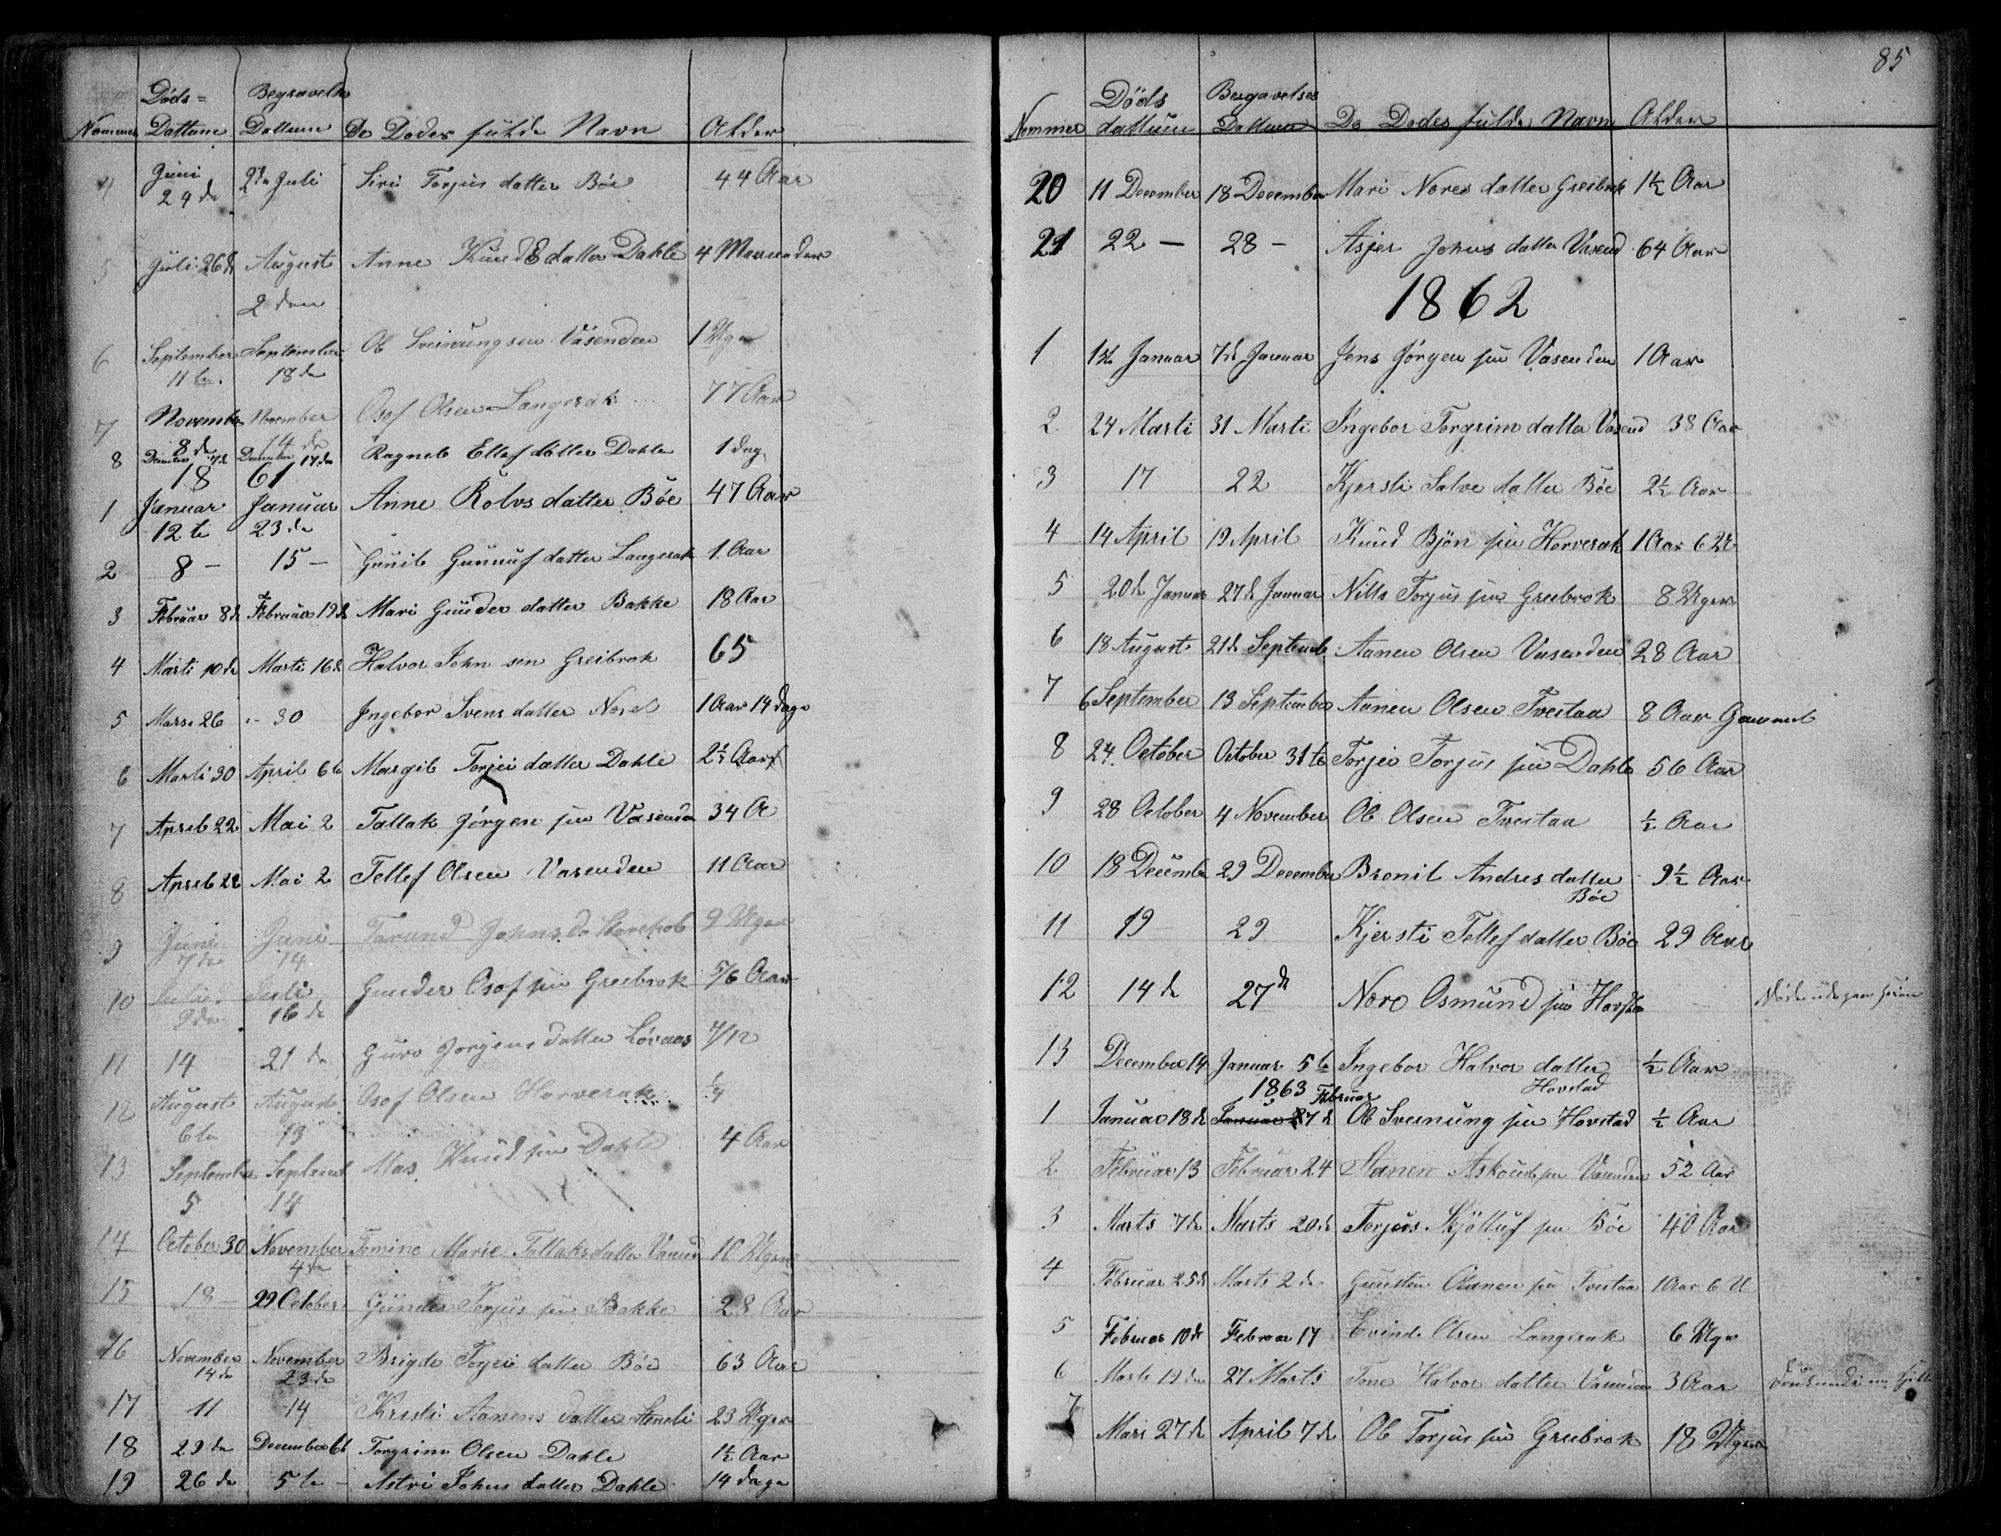 Døds= Begravelse
Nommer Dattum Dattum De Dødes fulde Navn Alder
4 Juni 24de 2den Juli Siri Torjus datter Böe 44 Aar
5 Juli 26de August 2den Anne Knuds datter Dahle 4 Maaneder
6 September 11te September 18de Ole Sveinungsen Vasenden 1 Uge
7 November 8de November 14de Osof Olsen Langerak 77 Aar
8 December 7de December 17de Ragnel Ellef datter Dahle 1 dag
1861
1 Januar 12te Januar 23de Anne Rolvs datter Böe 47 Aar
2 8 – 15 – Gunil Gunuuf datter Langerak 1 Aar
3 Februar 8de Februar 19de Mari Gunder datter Bakke 18 Aar
4 Marti 10de Marti 16de Halvor John sen Greibrok 65
5 Marti 26 30 Ingebor Svens datter 1 Aar 14 dage
6 Marti 30 April 6te Margit Torjei datter Dahle 2½ Aar
7 April 22 Mai 2 Tallak Jörgen sen Vasenden 34 A
8 April 22 Mai 2 Tellef Olsen Vasenden 11 Aar
9 Juni 7de Juni 14 Johns 9 Uger
10 9de Juli 16de Gunder Osof sen Greibrok 5/6 Aar
11 14 21de Guro Jorgens datter Lövaas 7/12
12 August 6te August 13 Osof Olsen Horverak ¼
13 September 5 Septemb 14 Mas Knud sen Dahle 4 Aar
14 October 30 November 4de Temine Marie Tallaks datter Vasend 10 Uger
15 18 – 29 October Gunder Torjus sen Bakke 28 Aar
16 November 14de November 23de Brigde Torjei datter Böe 63 Aar
17 11 14 Kristi Aanens datter 23 Uger
18 29de December 6te Torgrim Olsen Dahle 1½ Aar
19 26de 5te – Astri Johns datter Dahle 14 dage
85
Døds Begavelses
Nommer dattum Dattum De Dødes fulde Navn Alder
20 11 December 18 December Mari Nores datter Greibrok 1½ Aar
21 22 – 28 – Asjer Johns datter Vasend 64 Aar
1862
1 1ste Januar 7de Januar Jens Jörgen sen Vasenden 1 Aar
2 24 Marti 31 Marti Ingebor Torgrims datter Vasend 38 Aar
3 17 22 Kjersti Salve datter Böe 2½ Aar
4 14 April 19 April Knud Bjön sen Horverak 1 Aar 6 U
5 20de Januar 27de Januar Nills Torjus sen Greibrok 8 Uger
6 18 August 21de Septemb Aanen Olsen Vasenden 28 Aar
7 6 September 13 September Aanen Olsen Tveitaa 8 Aar Gammel
8 24. October October 31te Torjei Torjus sen Dahle 56 Aar
9 28 October 4 November Ole Olsen Tveitaa ½ Aar
10 18 Decembe 29 December Bronil Andres datter Böe 9½ Aar
11 19 29 Kjersti Tellef datter Böe 29 Aar
12 14de 27de Nore Osmund sen
13 December 14 Januar 5te Ingebor Halvor datter Hovstad ½ Aar
1863
1 Januar 18de Februar 7de Ole Sveinung sen Hovstad ½ Aar
2 Februar 13 Februar 24 Aanen sen Vasenden 52 Aar
3 Marts 7de Marts 20de Torjus Kjöttuf sen Böe 40 Aar
4 Februar 25de Marts 2de Gunsten Aanen sen Tveitaa 1 Aar 6 U
5 Februar 10de Februar 17 Evinde Olsen Langerak 6 Uger
6 Marti 19de 27 Marti Tone Halvor datter Vasenden 3 Aar
7 Mars 27de April 7de Ole Torjus sen Greibrok 18 Uger